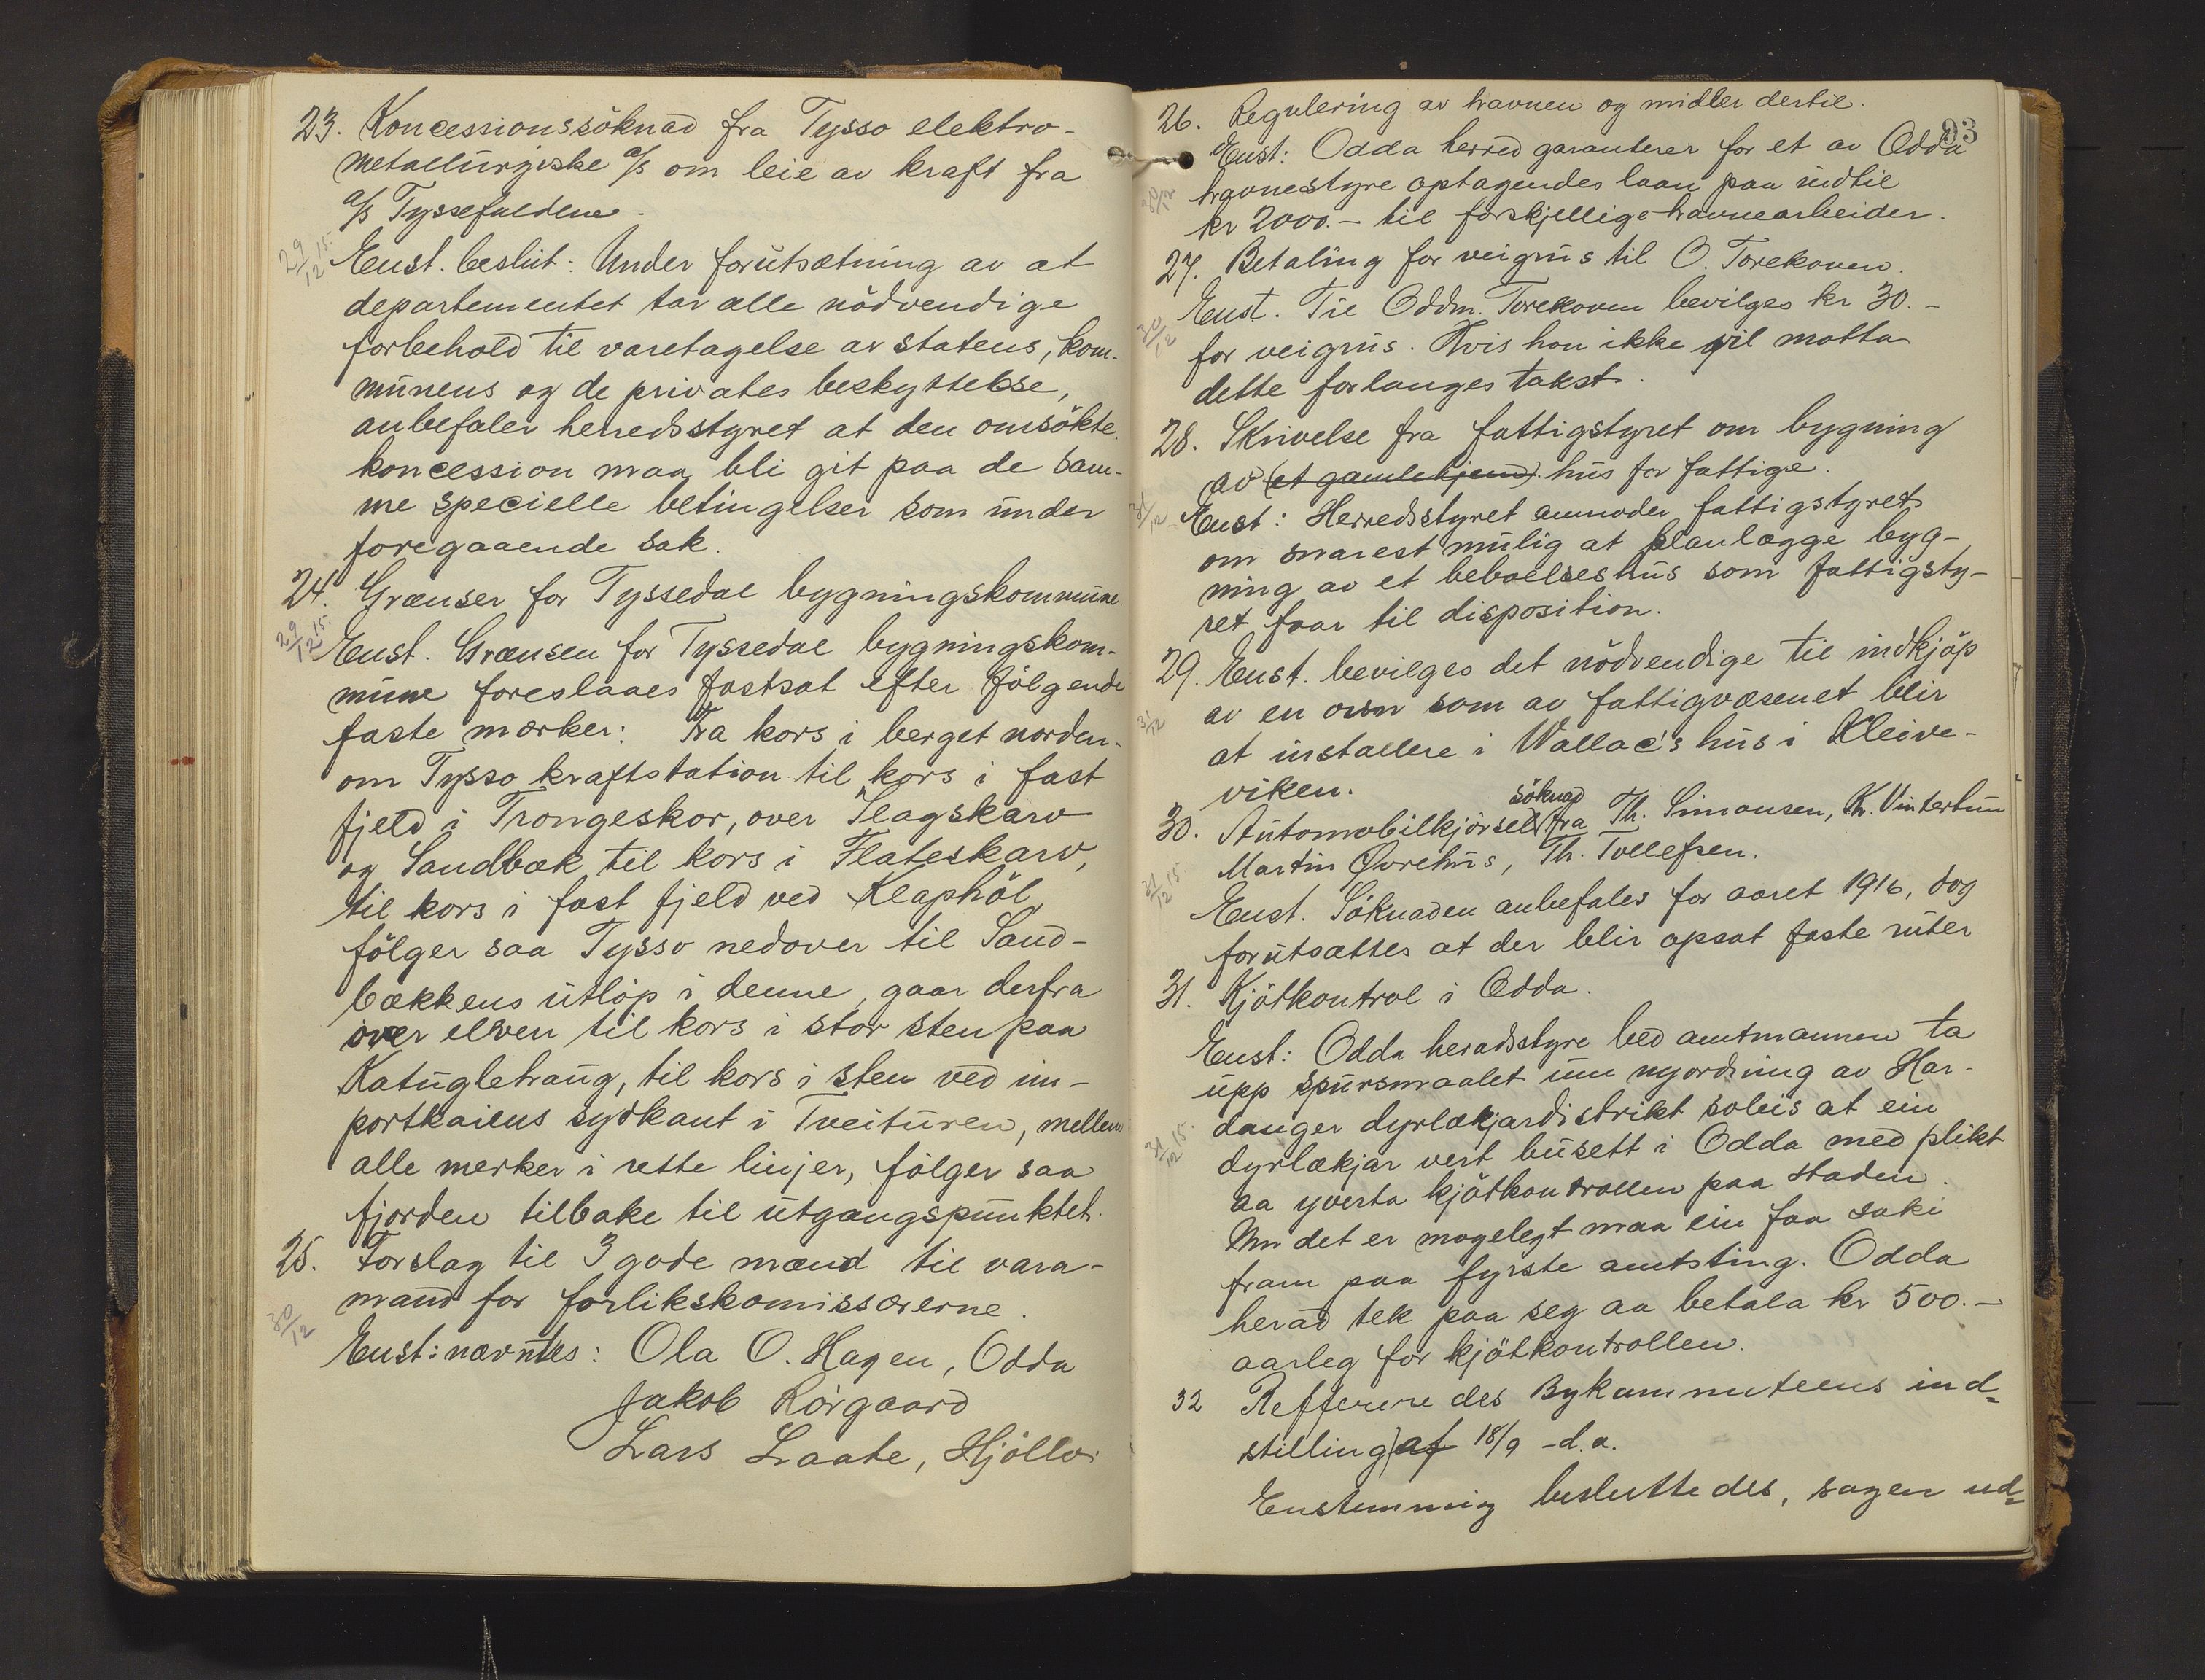 23. Koncessionssöknad fra Tysso elektro-
metallurgiske a/s om leie av kraft fra
a/s Tyssefaldene.
29/12 15.
Enst. beslut: Under forutsætning av at
departementet tar alle nödvendige
forbehold til varetagelse av statens, kom-
munens og de privates beskyttelse,
anbefaler herredsstyret at den omsökte
koncession maa bli git paa de sam-
me specielle betingelser som under
foregaaende sak.
24. Grænser for Tyssedal bygningskommune.
29/12 15.
Enst. Grænsen for Tyssedal bygningskom-
mune foreslaaes fastsat efter fölgende
faste mærker: Fra kors i berget norden-
om Tysso kraftstation til kors i fast
fjeld i Trongeskor, over Slagskarv
og Sandbæk til kors i Flateskarv,
til kors i fast fjeld ved Klaphöl,
fölger saa Tysso nedover til Sand-
bækkens utlöp i denne, gaar derfra
over elven til kors i stor sten paa
Katuglehaug, til kors i sten ved im-
portkaiens sydkant i Tveituren, mellem
alle merker i rette linjer, fölger saa
fjorden tilbake til utgangspunktet.
25. Forslag til 3 gode mænd til vara-
mænd for forlikskomissærerne.
30/12
Enst: nævntes: Ola O. Hagen, Odda
Jakob Rörgaard
Lars Laate, Hjöllo.
93
26. Regulering av havnen og midler dertil.
Enst: Odda herred garanterer for et av Odda
havnestyre optagendes laan paa indtil
kr 2000.- til forskjellige havnearbeider.
27. Betaling for veigrus til O. Torekoven.
30/12
Enst. Til Oddm. Torekoven bevilges kr 30.-
for veigrus. Hvis hon ikke vil motta
dette forlanges takst.
28. Skrivelse fra fattigstyret om bygning
av (et gamlehjem) hus for fattige.
31/12
Enst: Herredsstyret anmoder fattigstyret
om snarest mulig at planlægge byg-
ning av et beboelseshus som fattigsty-
ret faar til disposition.
29. Enst. bevilges det nödvendige til indkjöp
31/12
av en ovn som av fattigvæsenet blir
at installere i Wallac's hus i Kleive-
viken.
söknad
30. Automobilkjörsel fra Th. Simonsen, Kr. Vintertun
Martin Øvrehus, Th. Tollefsen.
31/12 15
Enst. Söknaden anbefales for aaret 1916, dog
forutsættes at der blir opsat faste ruter
31. Kjötkontrol i Odda.
Enst: Odda heradsstyre bed amtmannen ta
upp spursmaalet um nyordning av Har-
danger dyrlækjardistrikt soleis at ein
31/12 15.
dyrlækjar vert busett i Odda med plikt
aa yverta kjötkontrollen paa staden.
Um det er mogelegt maa ein faa saki
fram paa fyrste amtsting. Odda
herad tek paa seg aa betala kr 500.-
aarleg for kjötkontrollen.
32 Refferere des Bykommuteens ind=
stilling af 18/9 -d.a.
Enstemmig besluttedes, sagen ud=